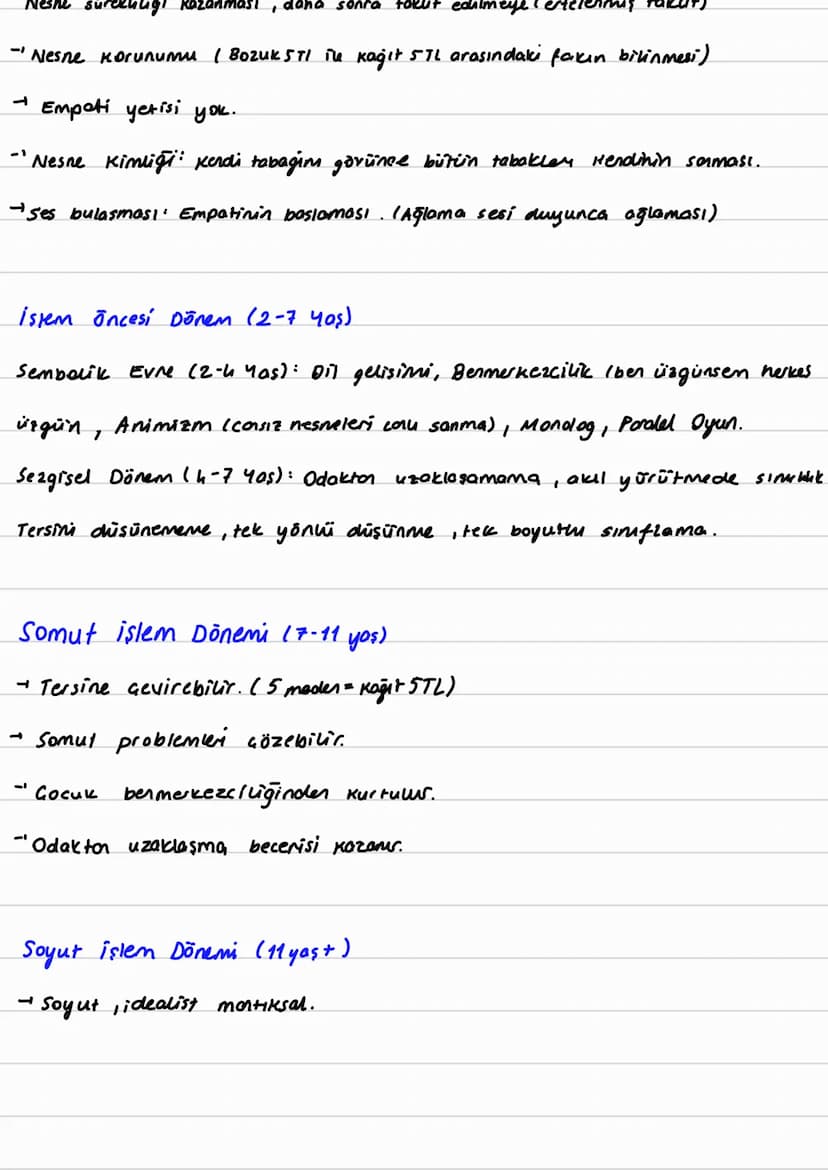 Nesne sürekliliği kazanması, daha sonra taklit edilmeye (ertelenmiş taklit)
→ Nesne korunumu (Bozuk 5Tl ile kağıt 5TL arasındaki farkın bilinmesi)
→ Empati yetisi yok.
→ Nesne Kimliği: Kendi tabağını görünce bütün tabakları kendinin sanması.
→ Ses bulasması: Empatinin baslaması. (Ağlama sesi duyunca ağlaması)
İşlem Öncesi Dönem (2-7 Yaş)
Sembolik Evre (2-4 Yaş): Dil gelisimi, Benmerkezcilik (ben üzgünsem herkes
üzgün, Animizm (cansız nesneleri canlı sanma), Monolog, Paralel Oyun.
Sezgisel Dönem (4-7 Yaş): Odaktan uzaklasamama, akıl yürütmede sınırlılık
Tersini düsünememe, tek yönlü düşünme, tek boyutlu sınıflama.
Somut işlem Dönemi (7-11 yaş)
→ Tersine çevirebilir. (5 maden = Kağıt 5TL)
→ Somut problemleri çözebilir.
→ Çocuk benmerkezciliğinden kurtulur.
→ Odaktan uzaklaşma becerisi kazanır.
Soyut işlem Dönemi (11 yaş+)
→ Soyut, idealist mantıksal.